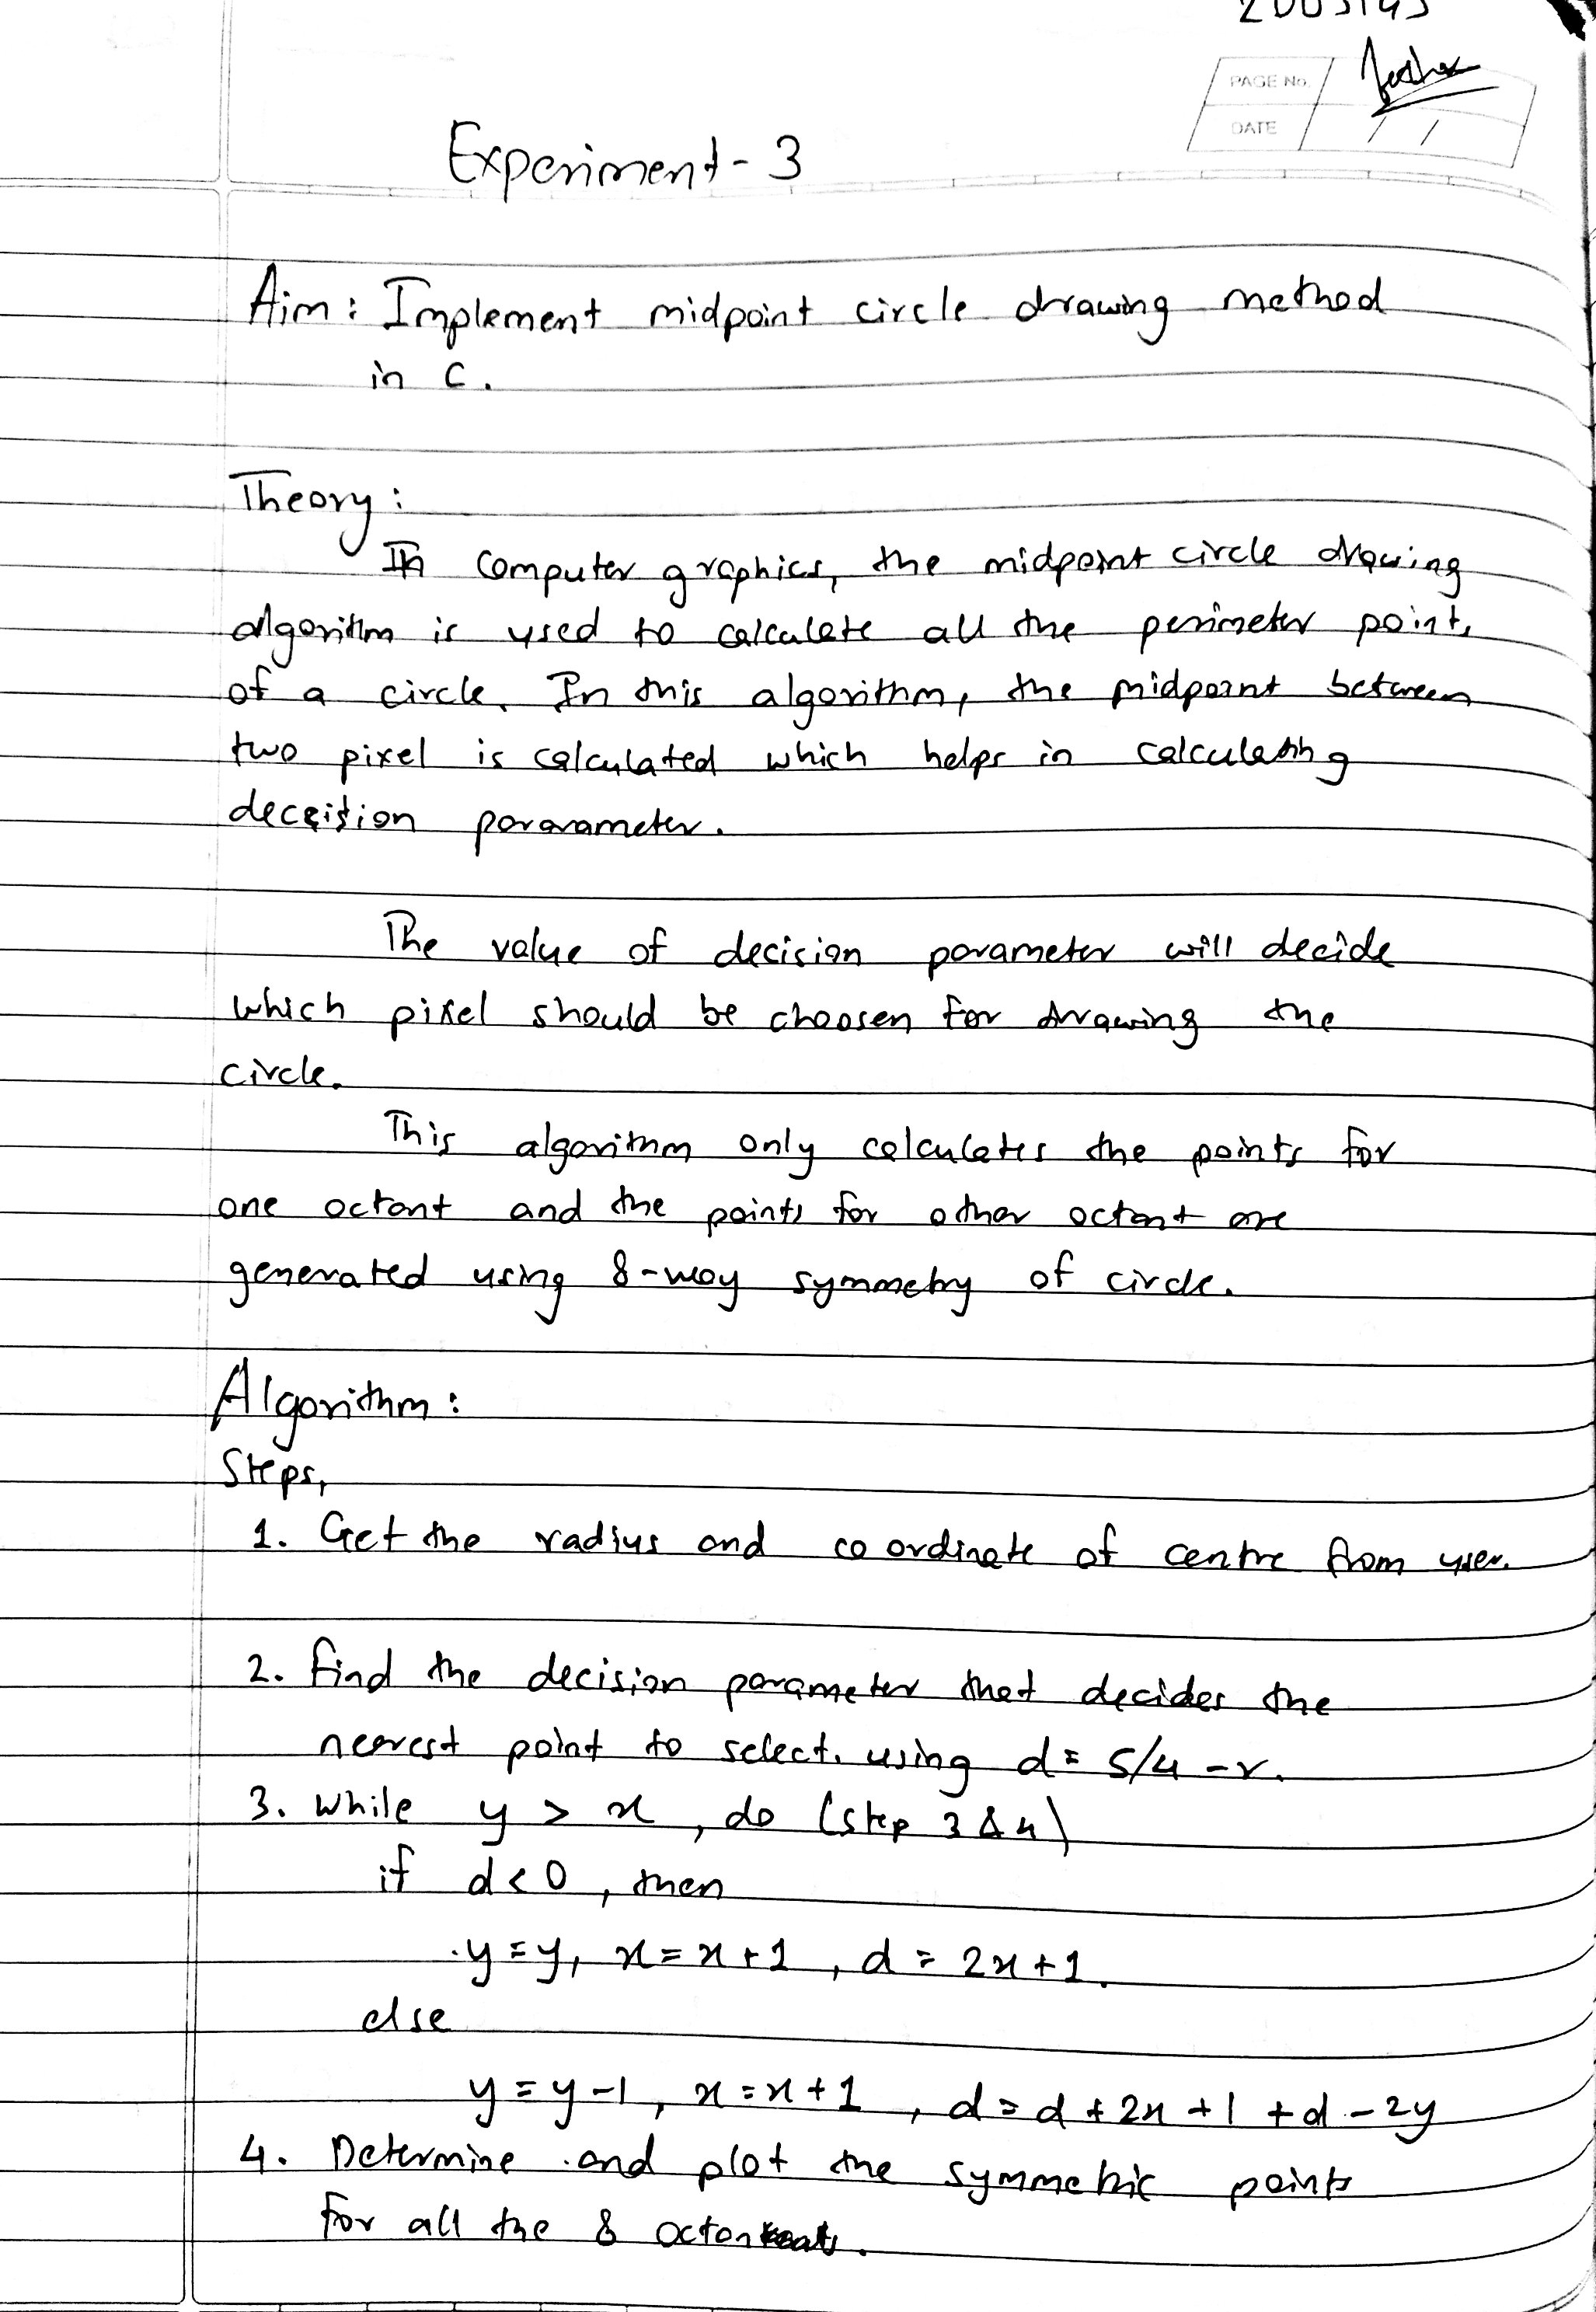 2005145
PAGE No.
DATE / /
Experiment - 3
Aim : Implement midpoint circle drawing method
in C.
Theory :
In computer graphics, the midpoint circle drawing
algorithm is used to calculate all the perimeter points
of a circle. In this algorithm, the midpoint between
two pixel is calculated which helps in calculating
decision pararameter.
The value of decision parameter will decide
which pixel should be choosen for drawing the
circle.
This algorithm only calculates the points for
one octant and the points for other octant are
generated using 8-way symmetry of circle.
Algorithm :
Steps,
1. Get the radius and coordinate of centre from user.
2. find the decision parameter that decides the
nearest point to select. using d = 5/4 - r.
3. while y > x , do (step 3 & 4)
if d < 0 , then
y = y, x = x + 1 , d = 2x + 1.
else
y = y - 1 , x = x + 1 , d = d + 2x + 1 + d - 2y
4. Determine and plot the symmetric points
for all the 8